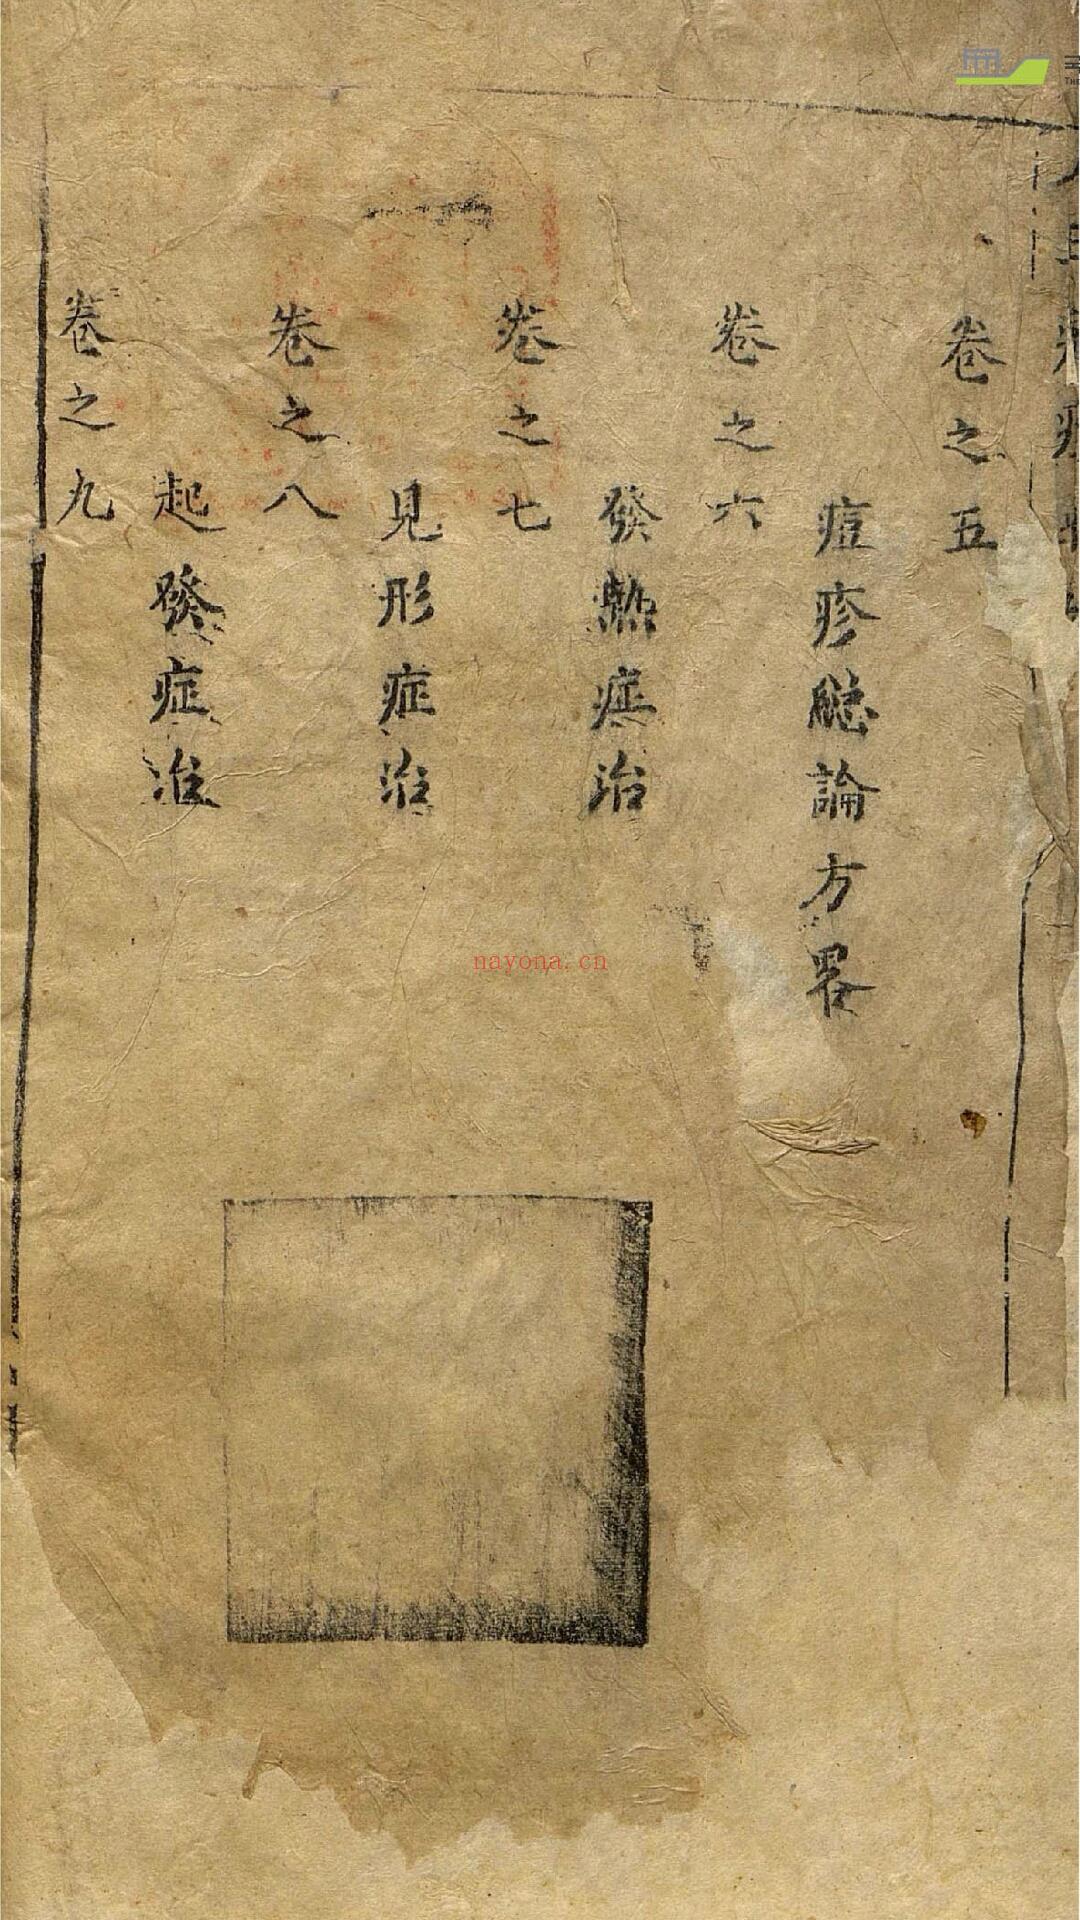 卷之五
痘疹總論方畧
卷之六
發熱症治
卷之七
見形症治
卷之八
起發症治
卷之九
nayona.cn